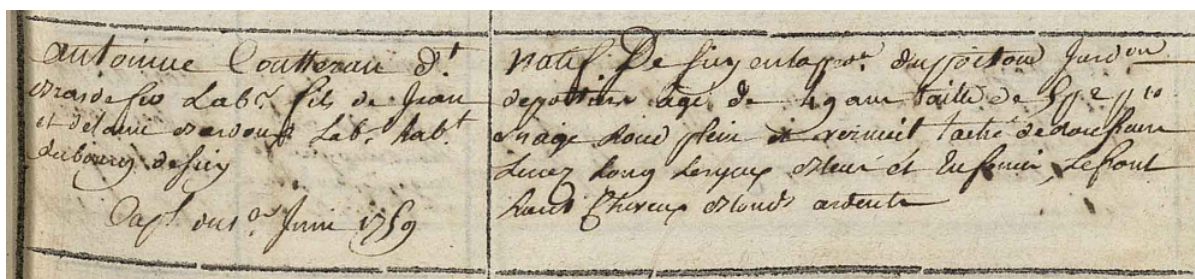 antoinne Coutterau d.t
Bras de fer Lab.r fils de Jean
et de Lab.r hab.t
du bourg de
Cap.l Juin 1759
natif De en la pro.ce du poitou Jurd.on
de agé de 49 ans taille de 5 p 2 po
visage Rond plein vermeil taché de rousseur
Le nez Long Les yeux bleus et enfoncés, Le front
haut Cheveux blonds ardents